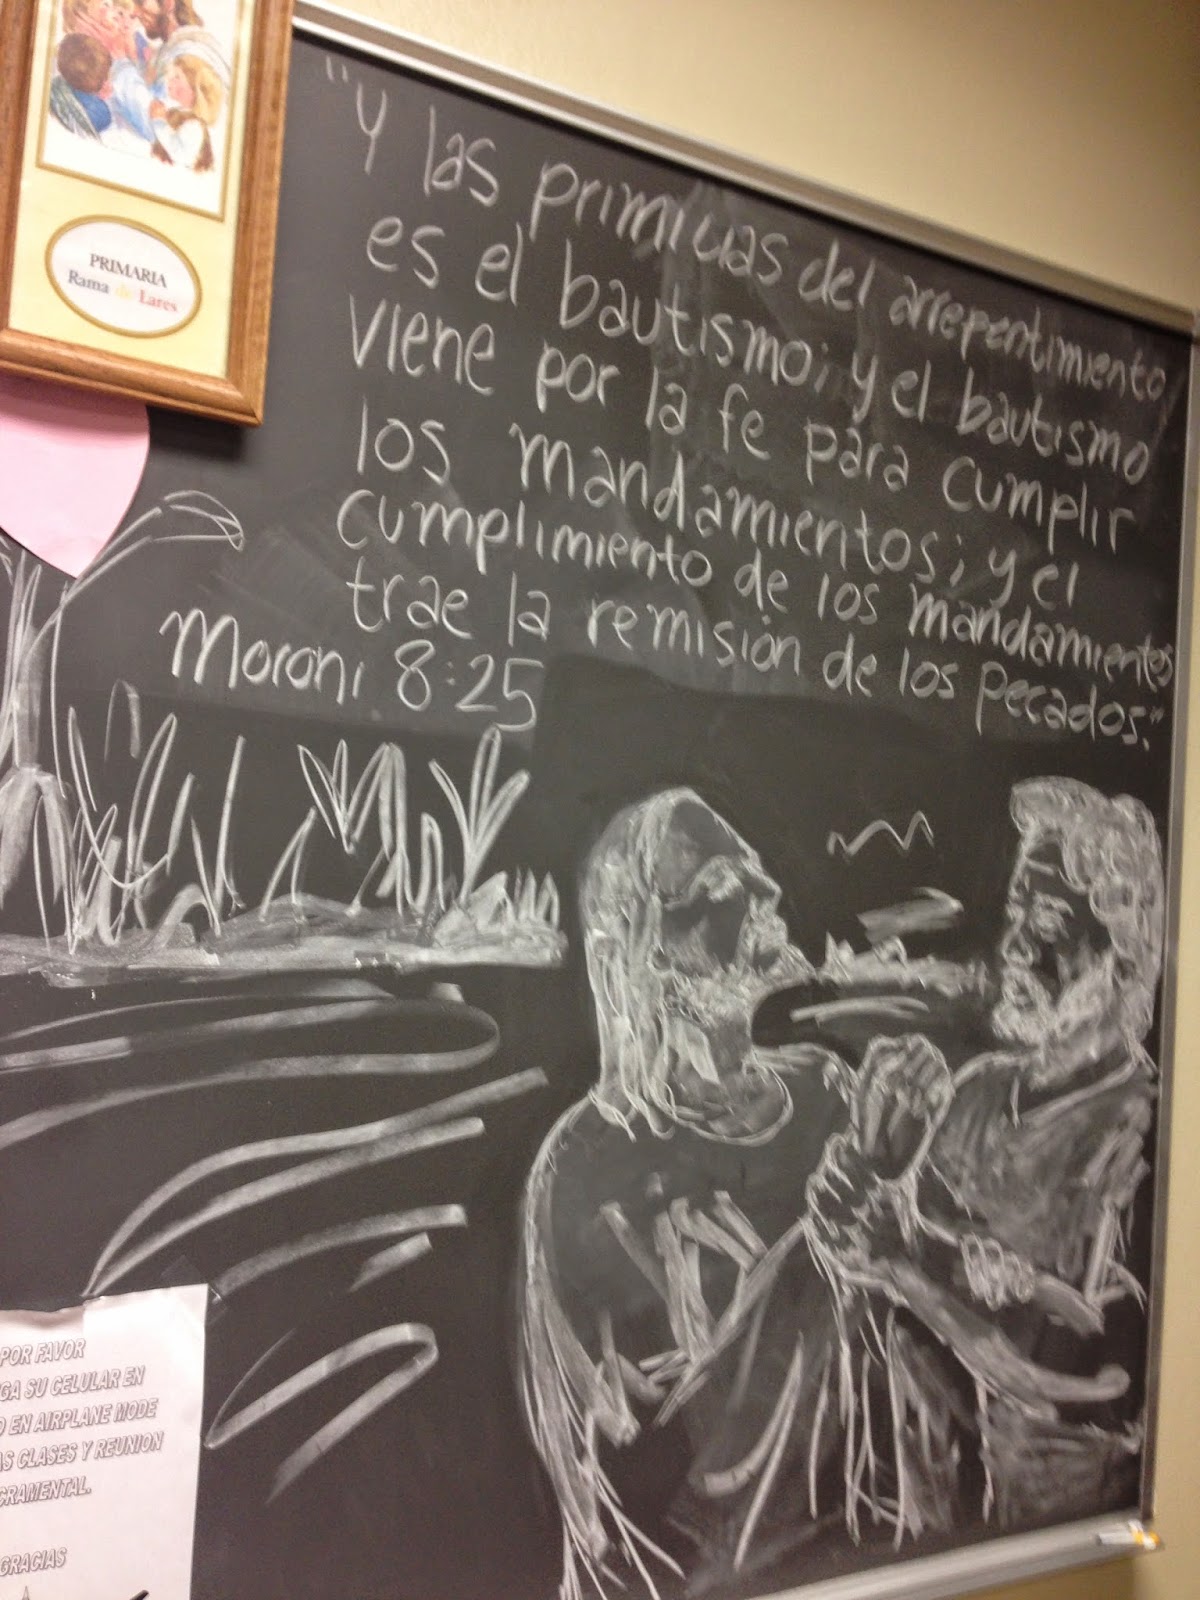 PRIMARIA
Rama de Lares
"Y las primicias del arrepentimiento
es el bautismo; y el bautismo
viene por la fe para cumplir
los mandamientos; y el
cumplimiento de los mandamientos
trae la remisión de los pecados."
Moroni 8:25
POR FAVOR
GA SU CELULAR EN
O EN AIRPLANE MODE
AS CLASES Y REUNION
CRAMENTAL.
GRACIAS